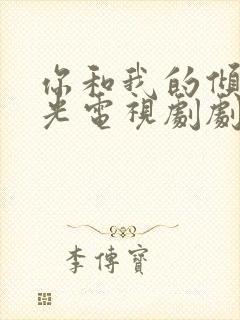 你和我的傾
光電視劇劇
李傳寶